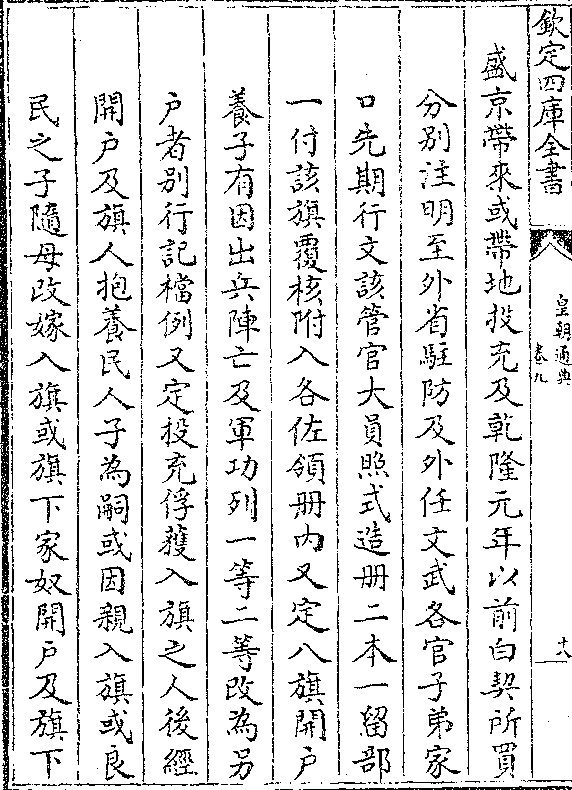 欽定四庫全書
皇朝通典
卷九
十八
盛京帶來或帶地投充及乾隆元年以前白契所買
分別注明至外省駐防及外任文武各官子弟家
口先期行文該管官大員照式造冊二本一留部
一付該旗覆核附入各佐領册内又定八旗開户
養子有因出兵陣亡及軍功列一等二等改為另
户者別行記檔例又定投充俘獲入旗之人後經
開户及旗人抱養民人子為嗣或因親入旗或良
民之子隨母改嫁入旗或旗下家奴開户及旗下